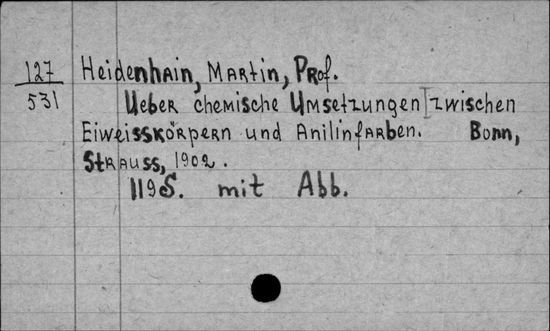 127 Heidenhain, Martin, Prof.
531 Ueber chemische Umsetzungen zwischen
Eiweisskörpern und Anilinfarben. Bonn,
Strauss, 1902.
119S. mit Abb.